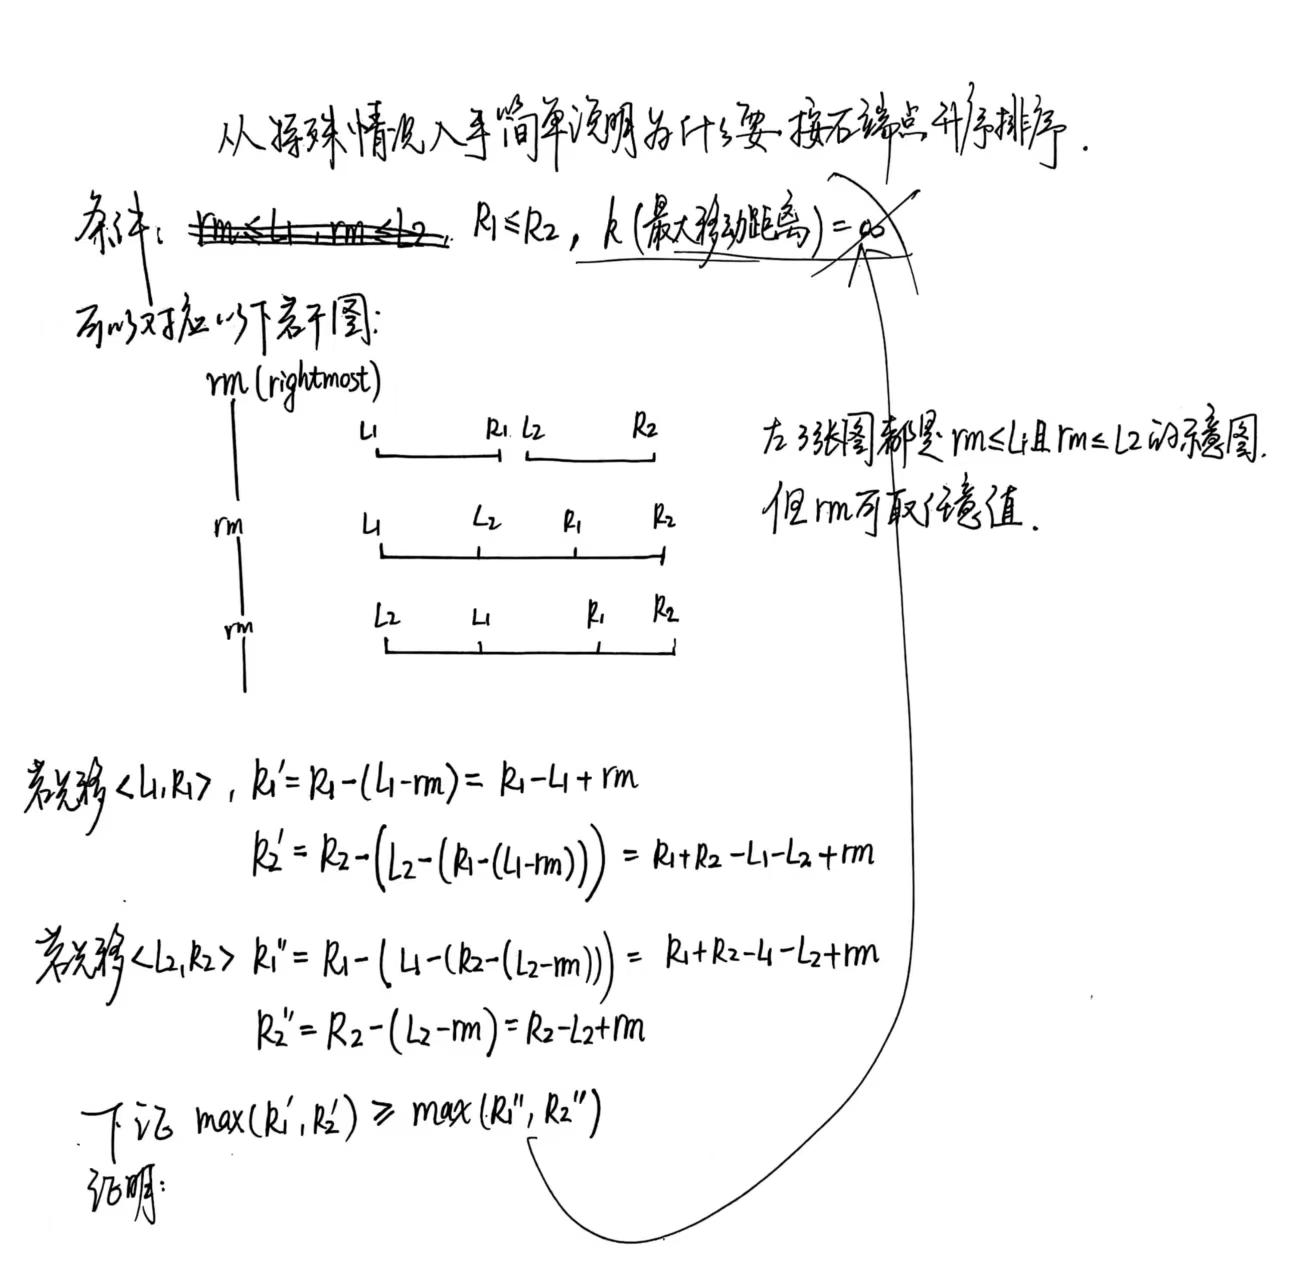 从特殊情况入手简单说明为什么要按右端点升序排序.
条件: rm≤L1, rm≤L2, R1≤R2, k(最大移动距离)=∞
可以对应以下若干图:
rm(rightmost)
L1 R1 L2 R2
rm L1 L2 R1 R2
rm L2 L1 R1 R2
左3张图都是rm≤L1且rm≤L2的示意图.
但rm可取任意值.
若先移<L1,R1>, R1'=R1-(L1-rm)=R1-L1+rm
R2'=R2-(L2-(R1-(L1-rm)))=R1+R2-L1-L2+rm
若先移<L2,R2> R1''=R1-(L1-(R2-(L2-rm)))=R1+R2-L1-L2+rm
R2''=R2-(L2-rm)=R2-L2+rm
下证 max(R1',R2')≥max(R1'',R2'')
证明: